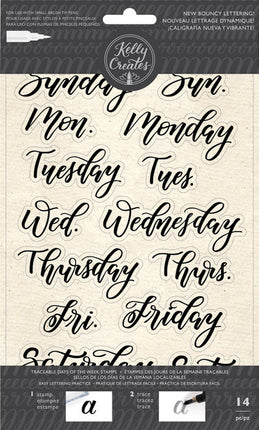 FOR USE WITH SMALL BRUSH TIP PENS
POUR USAGE AVEC STYLOS À PETITS PINCEAUX
PARA USO CON PLUMAS DE PINCEL PEQUEÑO
Kelly
Creates
NEW BOUNCY LETTERING!
NOUVEAU LETTRAGE DYNAMIQUE!
¡CALIGRAFÍA NUEVA Y VIBRANTE!
Sunday Sun.
Mon. Monday
Tuesday Tues.
Wed. Wednesday
Thursday Thurs.
Fri. Friday
Saturday Sat.
TRACEABLE DAYS OF THE WEEK STAMPS • ÉTAMPES DES JOURS DE LA SEMAINE TRAÇABLES
SELLOS DE DE LOS DÍAS DE LA SEMANA LOCALIZABLES
EASY LETTERING PRACTICE • PRATIQUE DE LETTRAGE FACILE • PRÁCTICA DE ESCRITURA FÁCIL
1 stamp
étampez
estampe
a
2 trace
tracez
trace
a
14
pc/pz